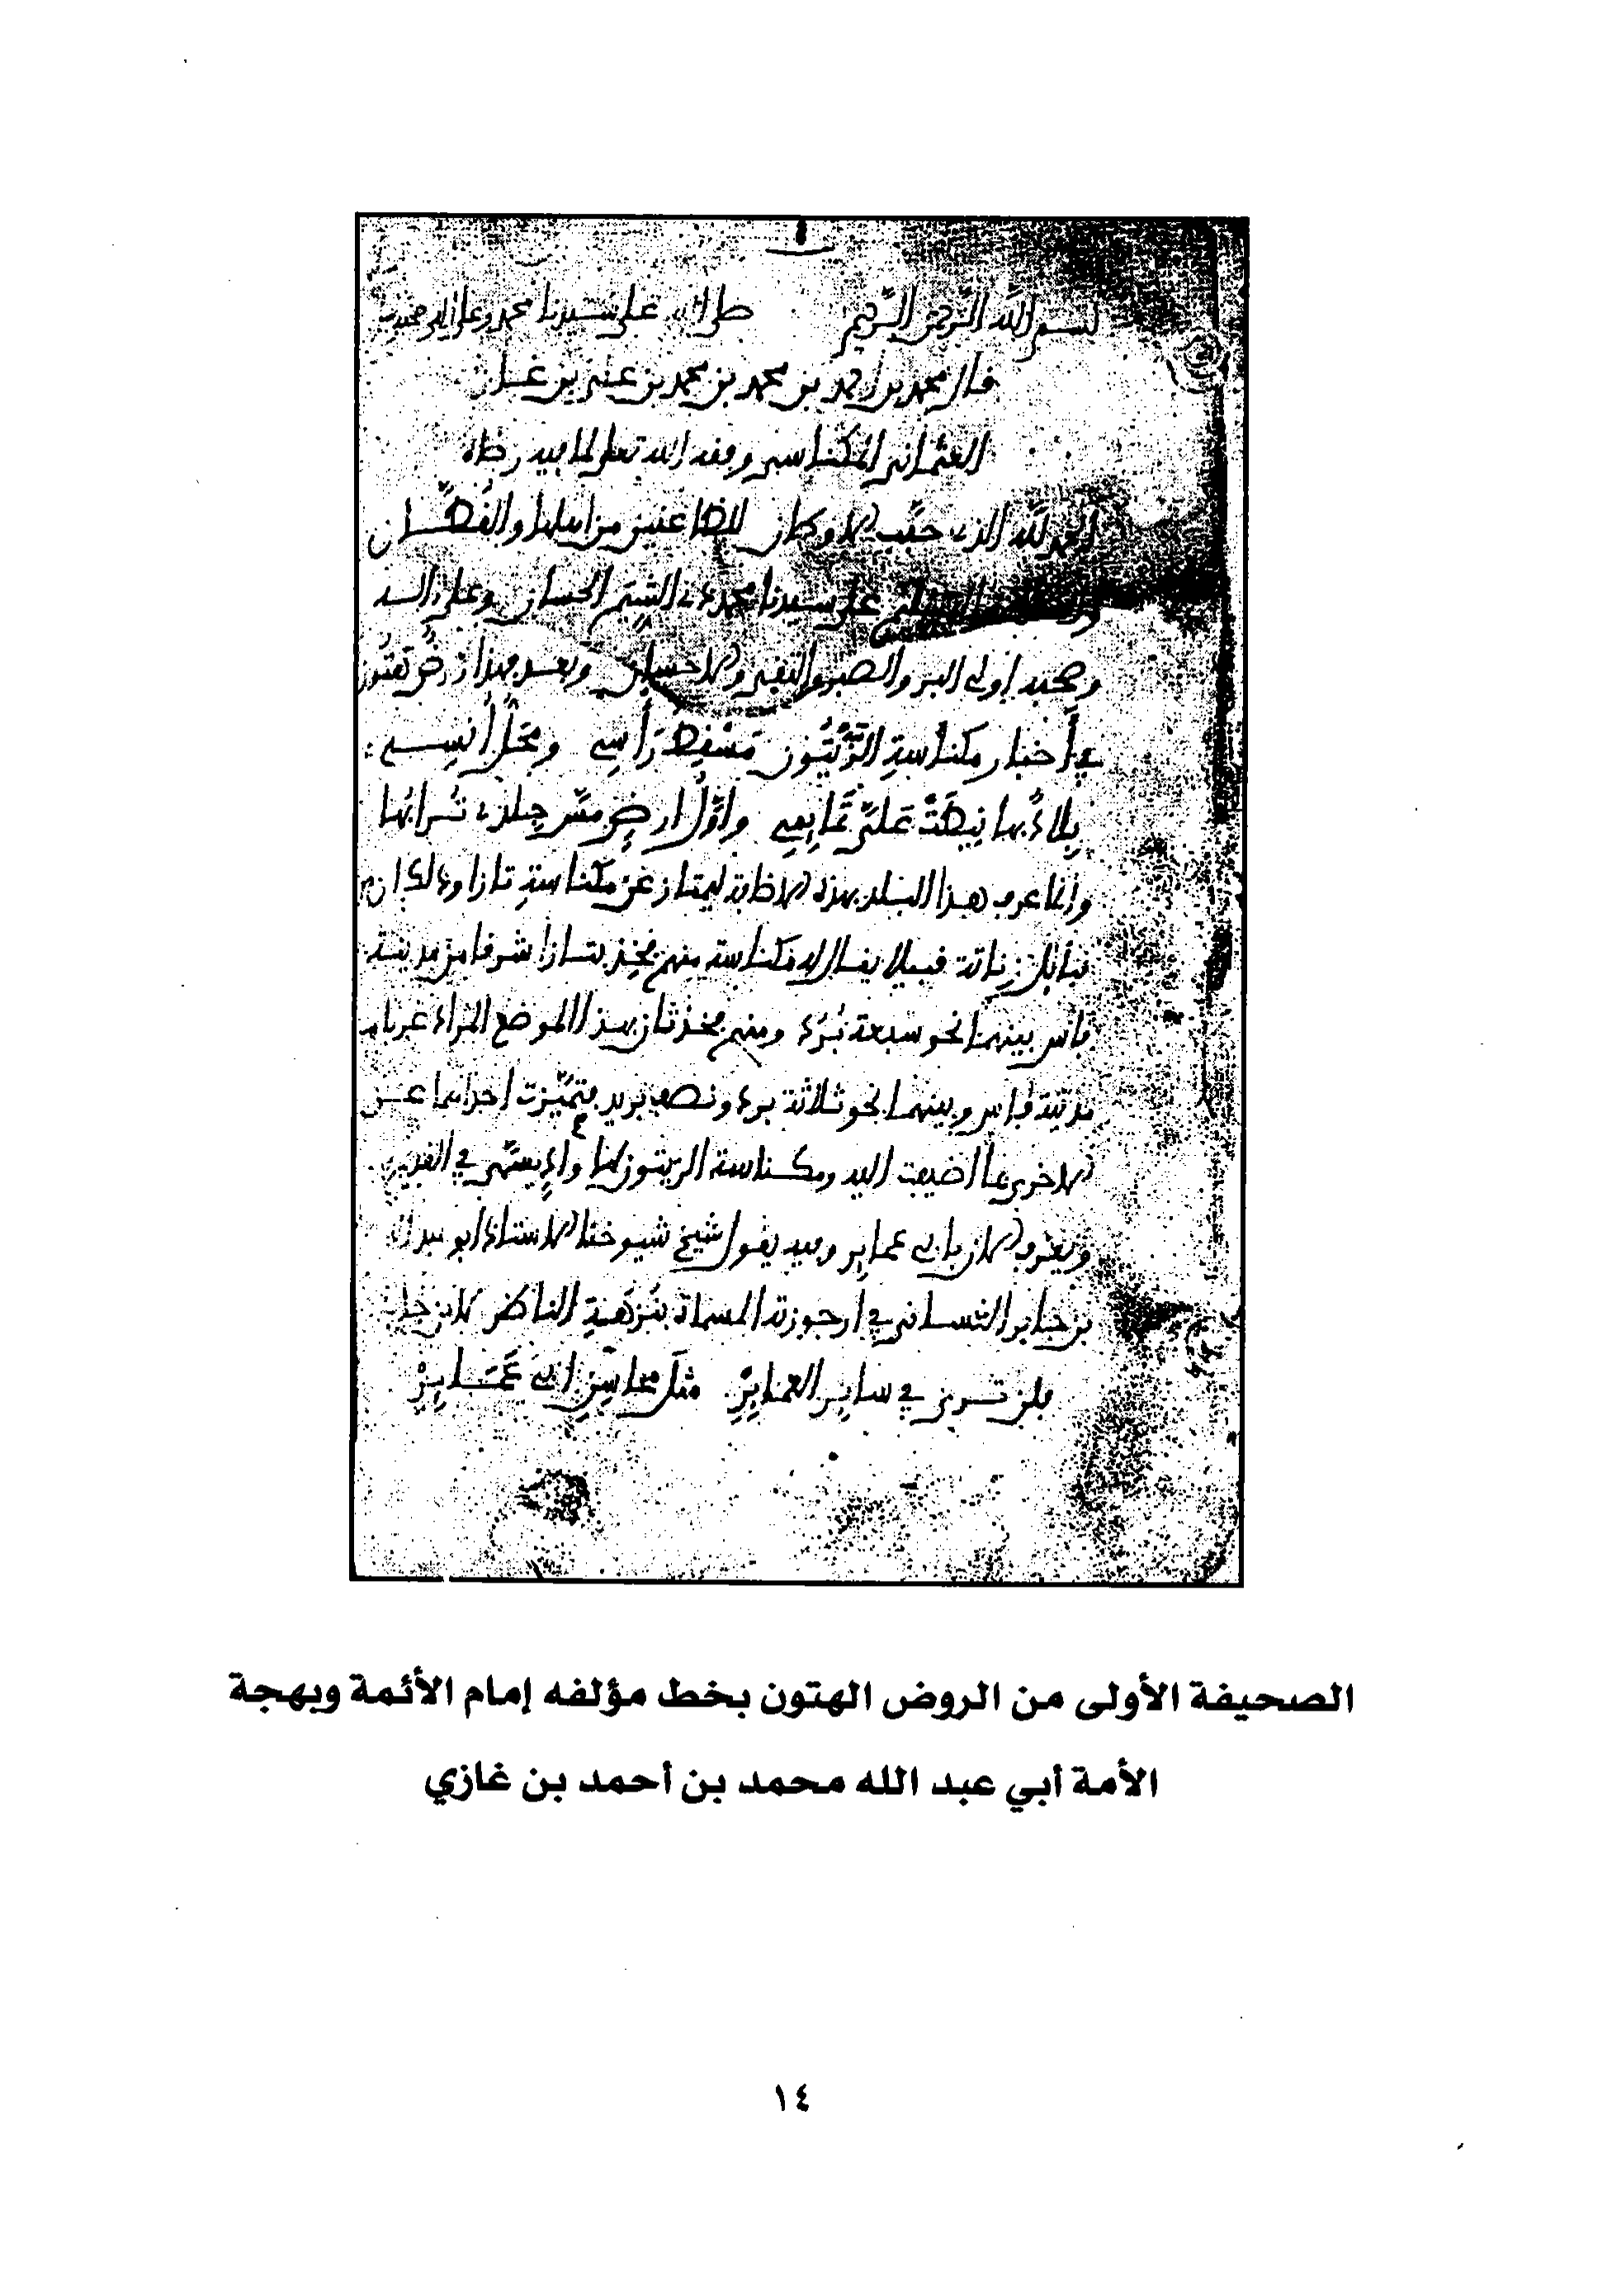 بسم الله الرحمن الرحيم صلى الله على سيدنا محمد وعلى آله وصحبه
قال محمد بن احمد بن محمد بن محمد بن علي بن غازي
العثماني المكناسي وفقه الله تعلى لما فيه رضاه
الحمد لله الذي حبب الاوطان للظاعنين من اهلها والقطان
على سيدنا محمد ذي الشيم الحسان وعلى آله
وصحبه اولي البر والصبر والتقى والاحسان وبعد فهذا روض هتون
في أخبار مكناسة الزيتون مسقط رأسي ومحل أنسي
بلاد بها نيطت علي تمايمي واول ارض مس جلدي ترابها
وانما عرف هذا البلد بهذه الاضافة ليمتاز عن مكناسة تازا وذلك ان في
قبايل زناتة قبيلا يقال له مكناسة منهم فخذ بتازا شرقا من مدينة
فاس بينهما نحو سبعة برد ومنهم فخذ ثان بهذا الموضع المراد غربا من
مدينة فاس وبينهما نحو ثلاثة برد ونصف بريد فتميزت احداهما عن
الاخرى بما اضيفت اليه ومكناسة الزيتون لها واد يسمى في القديم
ويعرف الان بابي عماير وفيه يقول شيخ شيوخنا الاستاذ ابو عبد الله
بن جابر الغساني في ارجوزته المسماة بنزهة الناظر لابن جابر
فلن ترى في ساير العماير مثل محاسن ابي عماير
الصحيفة الأولى من الروض الهتون بخط مؤلفه إمام الأئمة وبهجة
الأمة أبي عبد الله محمد بن أحمد بن غازي
١٤